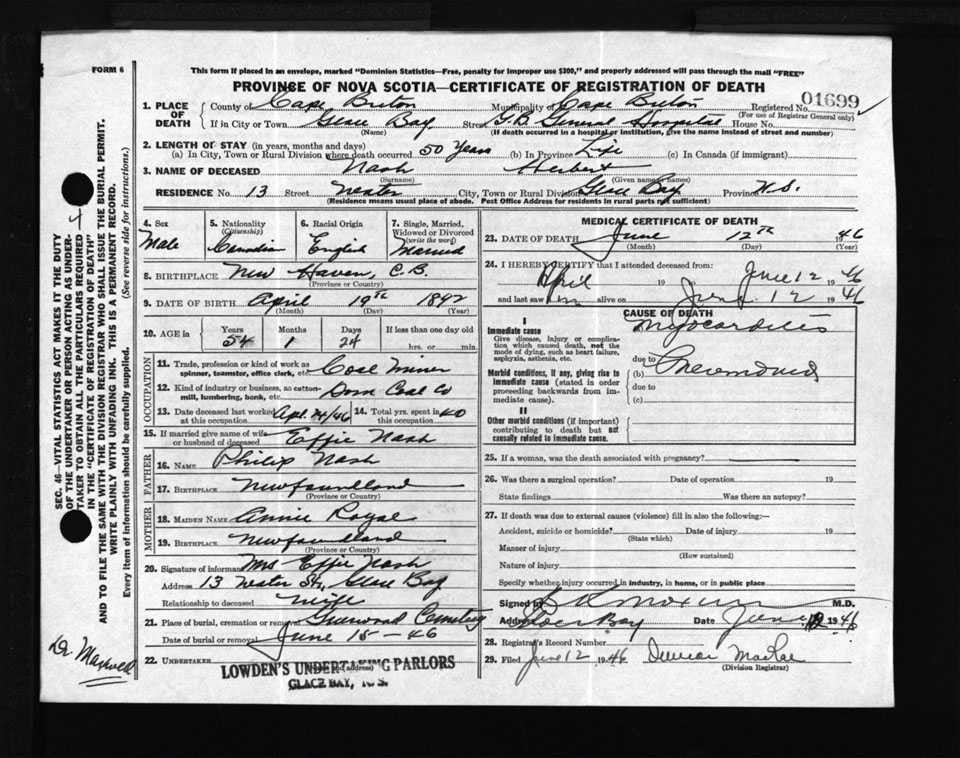 FORM 6
This form if placed in an envelope, marked "Dominion Statistics—Free, penalty for improper use $300," and properly addressed will pass through the mail "FREE"
PROVINCE OF NOVA SCOTIA—CERTIFICATE OF REGISTRATION OF DEATH
1. PLACE OF DEATH { County of Cape Breton Municipality of Cape Breton Registered No. 01699
(For use of Registrar General only)
If in City or Town Glace Bay Street G.B. General Hospital House No.
(Name) (If death occurred in a hospital or institution, give the name instead of street and number)
2. LENGTH OF STAY (in years, months and days)
(a) In City, Town or Rural Division where death occurred 50 Years (b) In Province Life (c) In Canada (if immigrant)
3. NAME OF DECEASED Nash Herbert
(Surname) (Given name or names)
RESIDENCE No. 13 Street City, Town or Rural Division Glace Bay Province N.S.
(Residence means usual place of abode. Post Office Address for residents in rural parts not sufficient)
4. Sex Male
5. Nationality (Citizenship) Canadian
6. Racial Origin English
7. Single, Married, Widowed or Divorced (write the word) Married
8. BIRTHPLACE New Haven, C.B.
(Province or Country)
9. DATE OF BIRTH April 19th 1892
(Month) (Day) (Year)
10. AGE in { Years 54 Months 1 Days 24 If less than one day old
hrs. or min.
OCCUPATION
11. Trade, profession or kind of work as spinner, teamster, office clerk, etc. Coal Miner
12. Kind of industry or business, as cotton-mill, lumbering, bank, etc. Dom Coal Co
13. Date deceased last worked at this occupation Apl. 24/46 14. Total yrs. spent in 40
15. If married give name of wife or husband of deceased Effie Nash
FATHER
16. NAME Philip Nash
17. BIRTHPLACE Newfoundland
(Province or Country)
MOTHER
18. MAIDEN NAME Annie Royal
19. BIRTHPLACE Newfoundland
(Province or Country)
20. Signature of informant Mrs Effie Nash
Address 13 St, Glace Bay
Relationship to deceased wife
21. Place of burial, cremation or removal Greenwood Cemetery
Date of burial or removal June 15-46
22. UNDERTAKER LOWDEN'S UNDERTAKING PARLORS
GLACE BAY, N.S.
MEDICAL CERTIFICATE OF DEATH
23. DATE OF DEATH June 12th 1946
(Month) (Day) (Year)
24. I HEREBY CERTIFY that I attended deceased from:
April 19 to June 12 1946
and last saw him alive on June 12 1946
CAUSE OF DEATH
I
Immediate cause Myocarditis
Give disease, injury or complication which caused death, not the mode of dying, such as heart failure, asphyxia, asthenia, etc.
due to
Morbid conditions, if any, giving rise to immediate cause (stated in order proceeding backwards from immediate cause).
(b) Pneumonia
due to
(c)
II
Other morbid conditions (if important) contributing to death but not causally related to immediate cause.
25. If a woman, was the death associated with pregnancy?
26. Was there a surgical operation? Date of operation 19
State findings Was there an autopsy?
27. If death was due to external causes (violence) fill in also the following:—
Accident, suicide or homicide? Date of injury 19
(State which)
Manner of injury
(How sustained)
Nature of injury
Specify whether injury occurred in industry, in home, or in public place
Signed by M.D.
Address Glace Bay Date June 12 1946
28. Registrar's Record Number
29. Filed June 12 1946 Duncan MacRae
(Division Registrar)
SEC. 46—VITAL STATISTICS ACT MAKES IT THE DUTY
OF THE UNDERTAKER OR PERSON ACTING AS UNDER-
TAKER TO OBTAIN ALL THE PARTICULARS REQUIRED
IN THE "CERTIFICATE OF REGISTRATION OF DEATH"
AND TO FILE THE SAME WITH THE DIVISION REGISTRAR WHO SHALL ISSUE THE BURIAL PERMIT.
WRITE PLAINLY WITH UNFADING INK. THIS IS A PERMANENT RECORD.
Every item of information should be carefully supplied. (See reverse side for instructions.)
Dr Maxwell